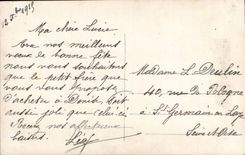 12 Xbre 1915
Ma chère Lucie
nos meilleurs
vœux de bonne fête
nous vous souhaitons
que le petit frère que
vous vous proposez
d'acheter à soit
aussi joli que celui-ci
nos affectueux
baisers.
Madame L.
40, rue de Pologne
à St Germain en Laye
Seine et Oise